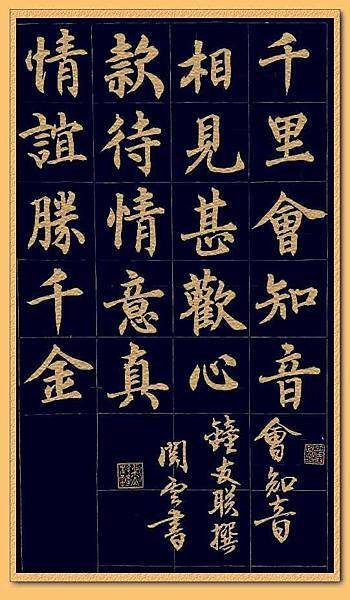 千里會知音
相見甚歡心
款待情意真
情誼勝千金
會知音
鐘友联撰
閑雲書